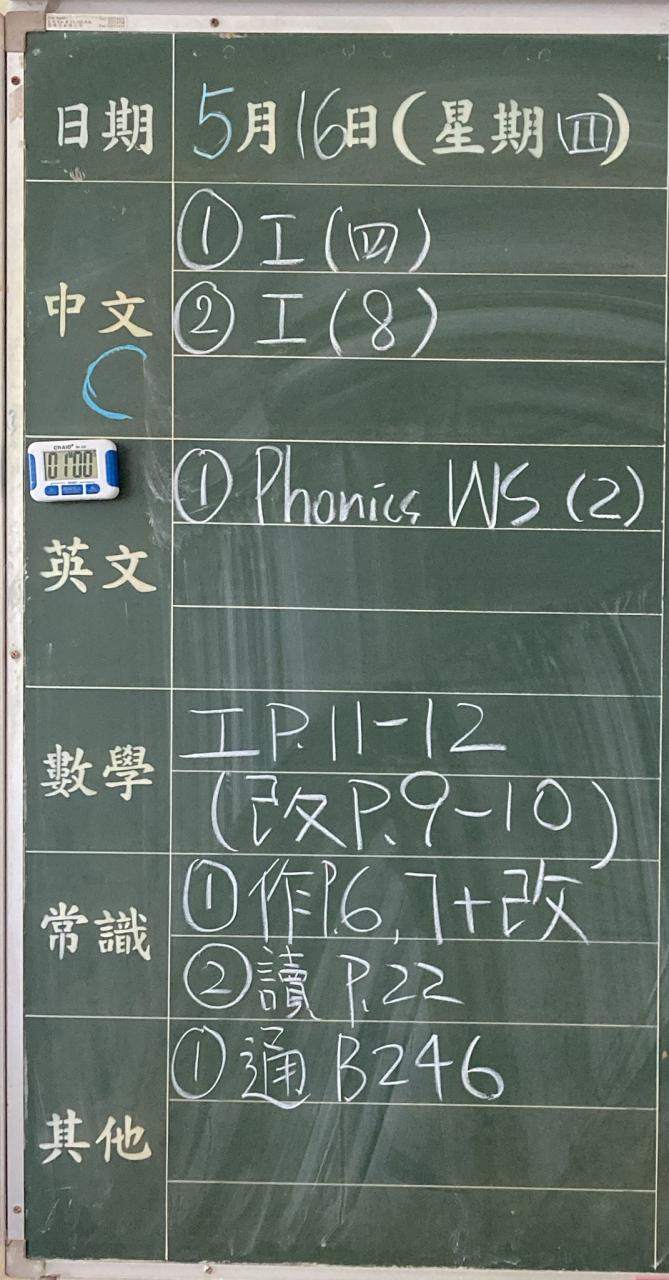 日期 5月16日(星期四)
中文
① 工(四)
② 工(8)
CRAIG
01:00
英文
① Phonics WS (2)
數學
工P.11-12
(改P.9-10)
常識
① 作P.6,7+改
② 讀 P.22
其他
① 通 B246